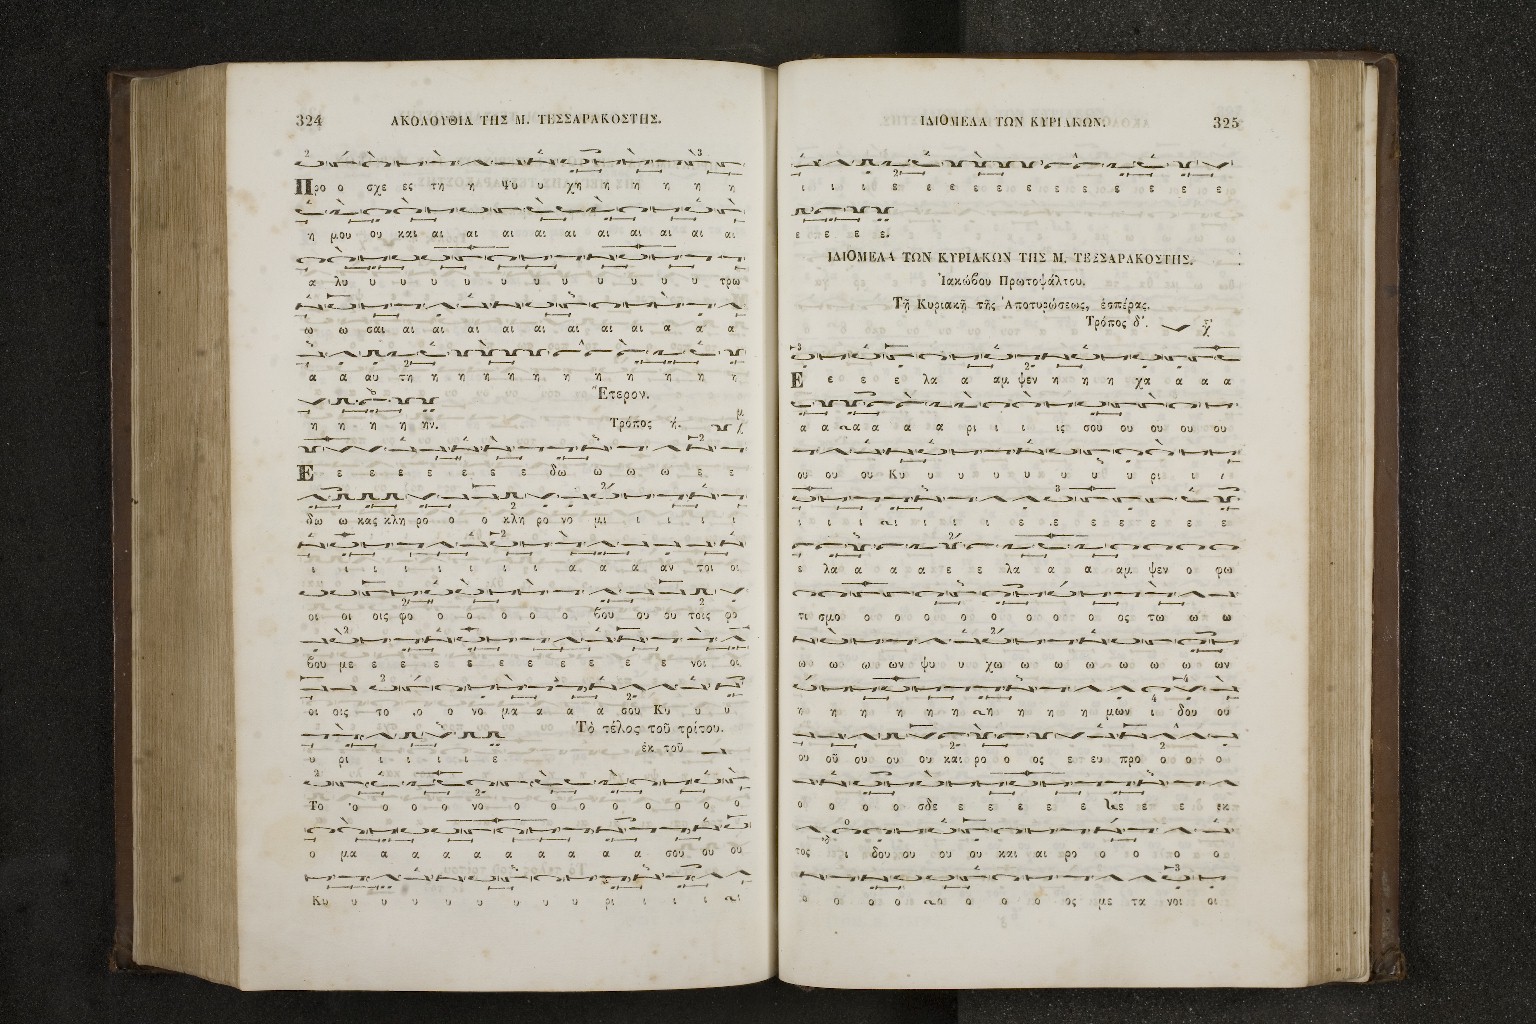 324 ΑΚΟΛΟΥΘΙΑ ΤΗΣ Μ. ΤΕΣΣΑΡΑΚΟΣΤΗΣ.
Προ ο σχε ες τη η ψυ υ χη η η η η η
η μου ου και αι αι αι αι αι αι αι αι αι
α λυ υ υ υ υ υ υ υ υ υ υ υ τρω
ω ω σαι αι αι αι αι αι αι αι α α α
α α αυ τη η η η η η η η η η η η
Ἕτερον.
η η η η ην. Τρόπος ή.
Ε ε ε ε ε ε ε ε δω ω ω ω ε ε
δω ω κας κλη ρο ο ο κλη ρο νο μι ι ι ι ι
ι ι ι ι ι ι ι ι α α α αν τοι οι
οι οι οι οις φο ο ο ο ο ο βου ου ου τοις φο
βου με ε ε ε ε ε ε ε ε ε ε νοι οι
οι οις το ο ο νο μα α α α σου Κυ υ υ
Τὸ τέλος τοῦ τρίτου.
ἐκ τοῦ
υ ρι ι ι ι ι ε
Το ο ο ο ο νο ο ο ο ο ο ο ο ο
ο μα α α α α α α α α α σου ου ου
Κυ υ υ υ υ υ υ υ υ ρι ι ι ι ι
ΙΔΙΟΜΕΛΑ ΤΩΝ ΚΥΡΙΑΚΩΝ. 325
ι ι ι ε ε ε ε ε ε ε ε ε ε ε ε ε
ε ε ε ε.
ΙΔΙΟΜΕΛΑ ΤΩΝ ΚΥΡΙΑΚΩΝ ΤΗΣ Μ. ΤΕΣΣΑΡΑΚΟΣΤΗΣ.
Ἰακώβου Πρωτοψάλτου.
Τῇ Κυριακῇ τῆς Ἀποτυρώσεως, ἑσπέρας.
Τρόπος δ'.
Ε ε ε ε λα α αμ ψεν η η η χα α α α
α α α α α α ρι ι ι ις σου ου ου ου ου
ου ου ου Κυ υ υ υ υ υ υ υ ρι ι ι
ι ι ι ι ι ι ι ε ε ε ε ε ε ε
ε λα α α α ε ε λα α α αμ ψεν ο φω
τι σμο ο ο ο ο ο ο ο ο ος τω ω ω
ω ω ω ων ψυ υ χω ω ω ω ω ω ω ων
η η η η η η η η η η μων ι δου ου
ου οῦ ου ου ου και ρο ο ος ε ευ προ ο ο ο
ο ο ο ο σδε ε ε ε ε ε ε ε ε εκ
τος ι δου ου ου ου και αι ρο ο ο ο ο
ο ο ο ο ο ο ο ο ος με τα νοι οι